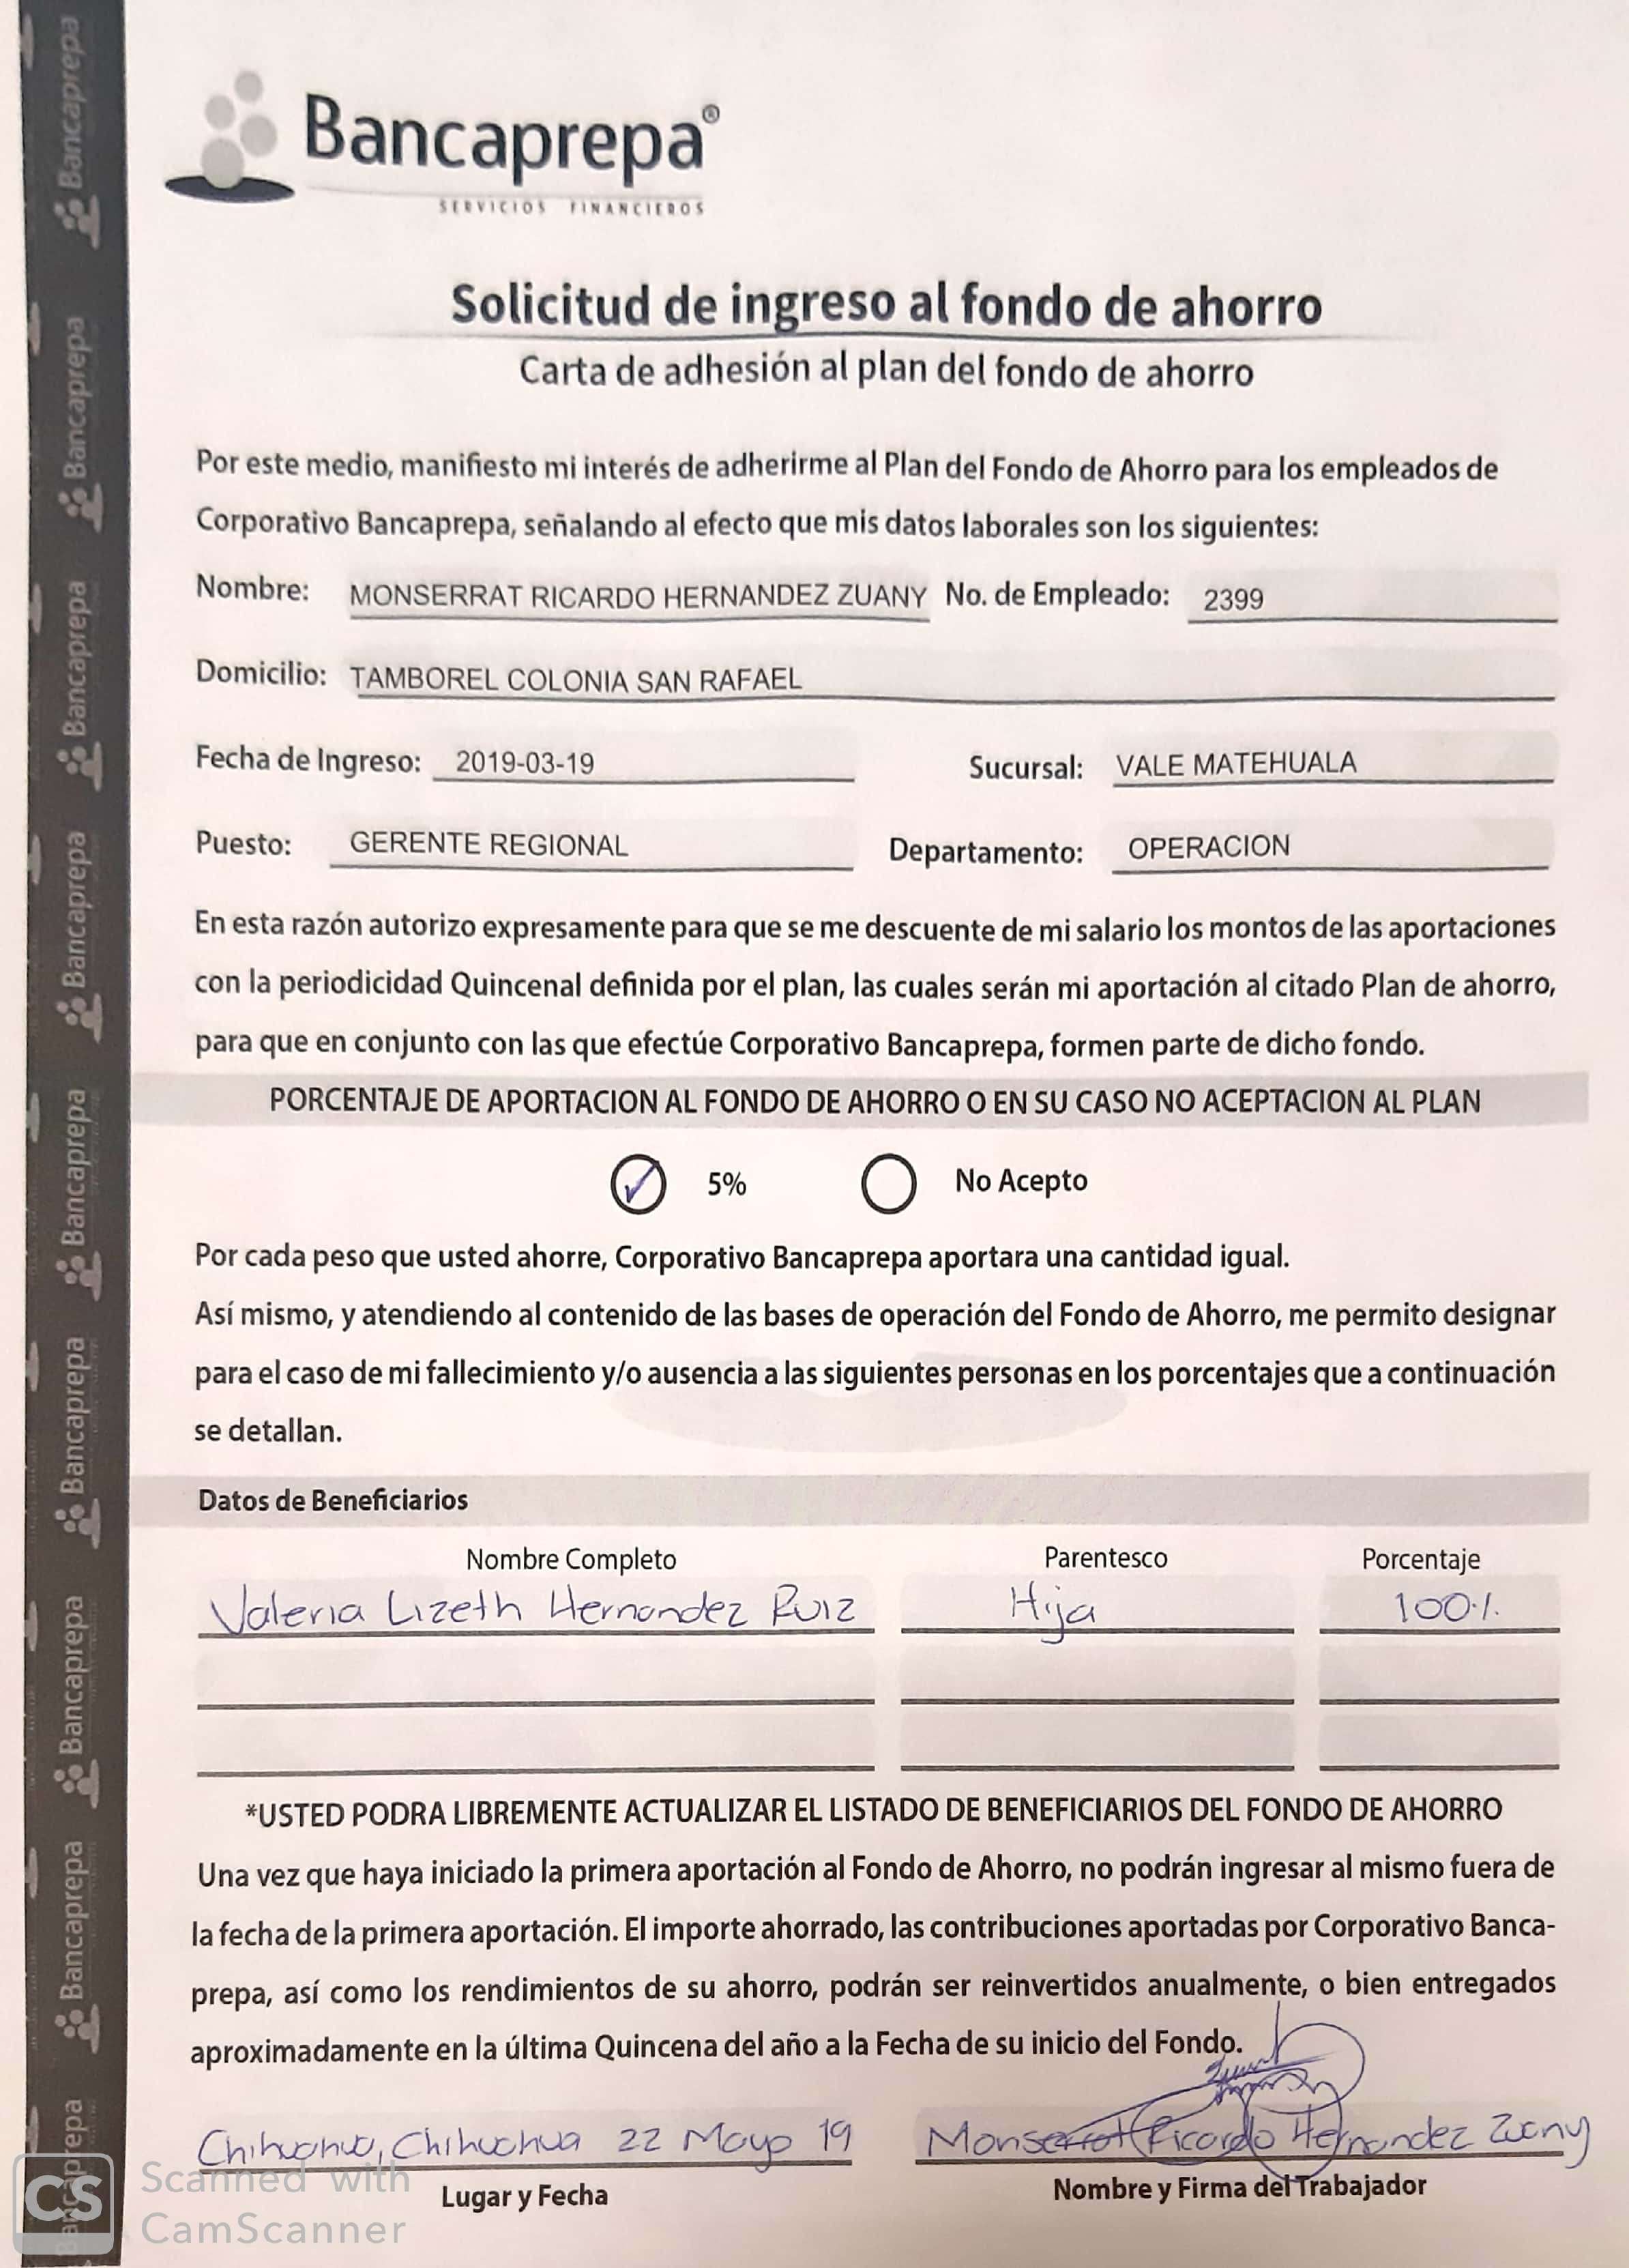 Bancaprepa®
SERVICIOS FINANCIEROS
Solicitud de ingreso al fondo de ahorro
Carta de adhesión al plan del fondo de ahorro
Por este medio, manifiesto mi interés de adherirme al Plan del Fondo de Ahorro para los empleados de
Corporativo Bancaprepa, señalando al efecto que mis datos laborales son los siguientes:
Nombre: MONSERRAT RICARDO HERNANDEZ ZUANY No. de Empleado: 2399
Domicilio: TAMBOREL COLONIA SAN RAFAEL
Fecha de Ingreso: 2019-03-19 Sucursal: VALE MATEHUALA
Puesto: GERENTE REGIONAL Departamento: OPERACION
En esta razón autorizo expresamente para que se me descuente de mi salario los montos de las aportaciones
con la periodicidad Quincenal definida por el plan, las cuales serán mi aportación al citado Plan de ahorro,
para que en conjunto con las que efectúe Corporativo Bancaprepa, formen parte de dicho fondo.
PORCENTAJE DE APORTACION AL FONDO DE AHORRO O EN SU CASO NO ACEPTACION AL PLAN
✓ 5% No Acepto
Por cada peso que usted ahorre, Corporativo Bancaprepa aportara una cantidad igual.
Así mismo, y atendiendo al contenido de las bases de operación del Fondo de Ahorro, me permito designar
para el caso de mi fallecimiento y/o ausencia a las siguientes personas en los porcentajes que a continuación
se detallan.
Datos de Beneficiarios
Nombre Completo Parentesco Porcentaje
Valeria Lizeth Hernandez Ruiz Hija 100%
*USTED PODRA LIBREMENTE ACTUALIZAR EL LISTADO DE BENEFICIARIOS DEL FONDO DE AHORRO
Una vez que haya iniciado la primera aportación al Fondo de Ahorro, no podrán ingresar al mismo fuera de
la fecha de la primera aportación. El importe ahorrado, las contribuciones aportadas por Corporativo Banca-
prepa, así como los rendimientos de su ahorro, podrán ser reinvertidos anualmente, o bien entregados
aproximadamente en la última Quincena del año a la Fecha de su inicio del Fondo.
Chihuahua, Chihuahua 22 Mayo 19 Monserrat Ricardo Hernandez Zuany
Lugar y Fecha Nombre y Firma del Trabajador
Bancaprepa
Bancaprepa
Bancaprepa
Bancaprepa
Bancaprepa
Bancaprepa
Bancaprepa
Bancaprepa
Bancaprepa
CS Scanned with
CamScanner